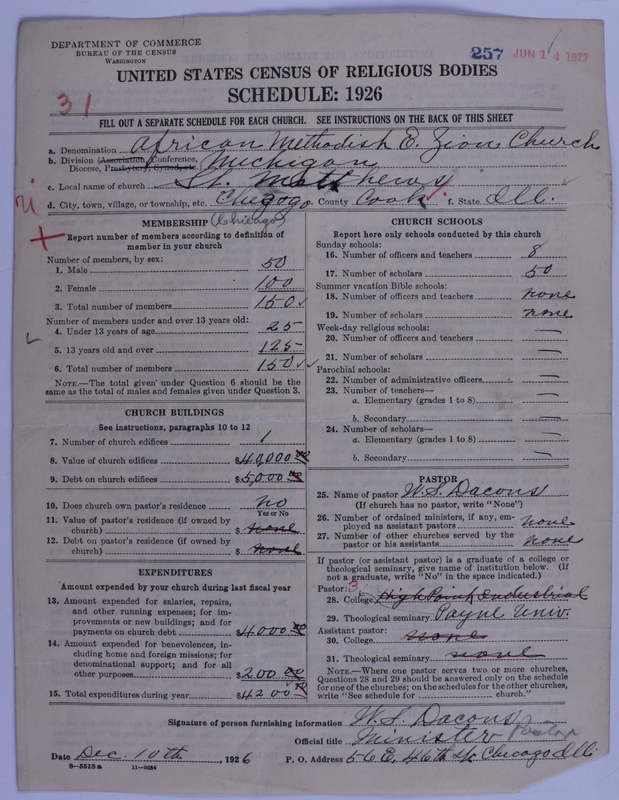 DEPARTMENT OF COMMERCE
BUREAU OF THE CENSUS
WASHINGTON
257 JUN 14 1927
UNITED STATES CENSUS OF RELIGIOUS BODIES
SCHEDULE: 1926
31
FILL OUT A SEPARATE SCHEDULE FOR EACH CHURCH. SEE INSTRUCTIONS ON THE BACK OF THIS SHEET
a. Denomination African Methodish E. Zion Church
b. Division (Association, Conference, Diocese, Presbytery, Synod, etc. Michigan
c. Local name of church St. Matthews
d. City, town, village, or township, etc. Chigogo County Cook f. State Ill.
(Chicago)
MEMBERSHIP
Report number of members according to definition of
member in your church
Number of members, by sex:
1. Male 50
2. Female 100
3. Total number of members 150
Number of members under and over 13 years old:
4. Under 13 years of age 25
5. 13 years old and over 125
6. Total number of members 150
NOTE.—The total given under Question 6 should be the
same as the total of males and females given under Question 3.
CHURCH BUILDINGS
See instructions, paragraphs 10 to 12
7. Number of church edifices 1
8. Value of church edifices $40,000 00
9. Debt on church edifices $5,000 00
10. Does church own pastor's residence no
Yes or No
11. Value of pastor's residence (if owned by
church) $ none
12. Debt on pastor's residence (if owned by
church) $ none
EXPENDITURES
Amount expended by your church during last fiscal year
13. Amount expended for salaries, repairs,
and other running expenses; for im-
provements or new buildings; and for
payments on church debt $4000 00
14. Amount expended for benevolences, in-
cluding home and foreign missions; for
denominational support; and for all
other purposes $200 00
15. Total expenditures during year $4200 00
CHURCH SCHOOLS
Report here only schools conducted by this church
Sunday schools:
16. Number of officers and teachers 8
17. Number of scholars 50
Summer vacation Bible schools:
18. Number of officers and teachers none
19. Number of scholars none
Week-day religious schools:
20. Number of officers and teachers —
21. Number of scholars —
Parochial schools:
22. Number of administrative officers —
23. Number of teachers—
a. Elementary (grades 1 to 8) —
b. Secondary —
24. Number of scholars—
a. Elementary (grades 1 to 8) —
b. Secondary —
PASTOR
25. Name of pastor W. S. Dacons
(If church has no pastor, write "None")
26. Number of ordained ministers, if any, em-
ployed as assistant pastors none
27. Number of other churches served by the
pastor or his assistants none
If pastor (or assistant pastor) is a graduate of a college or
theological seminary, give name of institution below. (If
not a graduate, write "No" in the space indicated.)
Pastor: 3
28. College High Point Industrial
29. Theological seminary Payne Univ.
Assistant pastor:
30. College none
31. Theological seminary none
NOTE.—Where one pastor serves two or more churches,
Questions 28 and 29 should be answered only on the schedule
for one of the churches; on the schedules for the other churches,
write "See schedule for church."
Signature of person furnishing information W. S. Dacons
Official title Minister Pastor
Date Dec. 10th, 1926 P. O. Address 56 E. 46th st. Chicago Ill.
8—5518a 11—9054